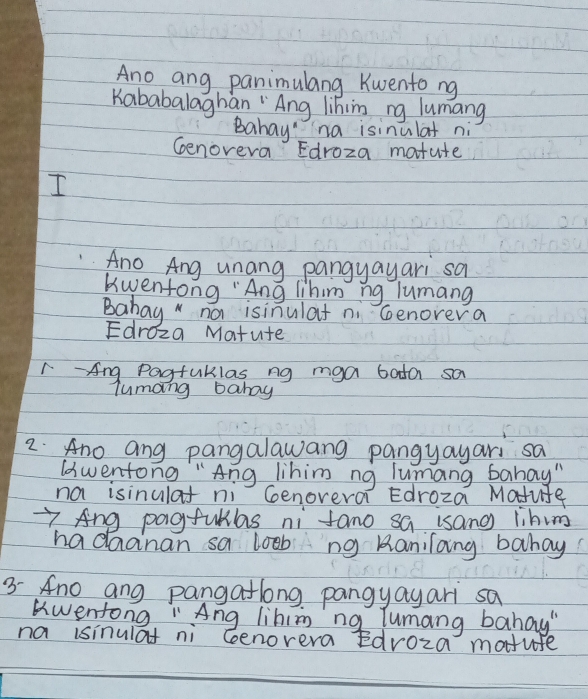 Ano ang panimulang Kwento ng
Kababalaghan "Ang lihim ng lumang
Bahay" na isinulat ni
Genovera Edroza matute
I
Ano Ang unang pangyayari sa
Kwentong "Ang lihim ng lumang
Bahay" na isinulat ni Genovera
Edroza Matute
1. -Ang Pagtuklas ng mga bata sa
lumang bahay
2. Ano ang pangalawang pangyayari sa
Kwentong "Ang lihim ng lumang bahay"
na isinulat ni Genovera Edroza Matute
→ Ang pagtuklas ni tano sa isang lihim
na daanan sa loob ng Kanilang bahay
3- Ano ang pangatlong pangyayari sa
Kwentong "Ang lihim ng lumang bahay"
na isinulat ni Genovera Edroza matute